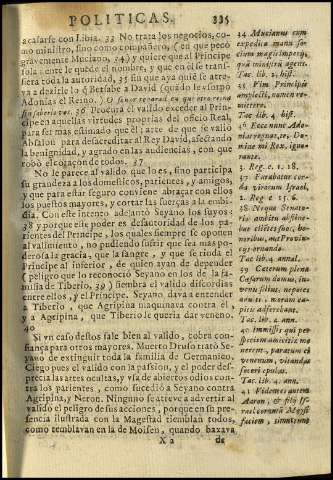 POLITICAS. 335
a casarse con Libia. 33 No trata los negocios, co-
mo ministro, sino como compañero, (en que pecò
gravemente Muciano, 34) y quiere que al Principe
sola-ente le quede el nombre, y que en èl se trans-
fiera toda la autoridad, 35 sin que aya quiè se atre-
va a dezirle lo q̃ Betsabe a David (quãdo le usurpò
Adonias el Reino.) O señor reparad en que otro reina
sin saberlo vos. 36 Procura el valido exceder al Prin-
cipe en aquellas virtudes proprias del oficio Real,
para ser mas estimado que èl; arte de que se valiò
Absalon para desacreditar al Rey David, afectando
la benignidad, y agrado en las audiencias, con que
robò el coraçon de todos. 37
No le parece al valido que lo es, sino participa
su grandeza a los domesticos, parientes, y amigos,
y que para estar seguro conviene abraçar con ellos
los puestos mayores, y cortar las fuerças a la embi-
dia. Con este intento adelantò Seyano los suyos:
38 y porque este poder es desautoridad de los pa-
rientes del Principe, los quales siempre se oponen
al valimiento, no pudiendo sufrir que sea mas po-
derosa la gracia, que la sangre, y que se rinda el
Principe al inferior, de quien ayan de depender
(peligro que lo reconociò Seyano en los de la fa-
milia de Tiberio, 39) siembra el valido discordias
entre ellos, y el Principe. Seyano dava a entender
a Tiberio, que Agripina maquinava contra èl, y
a Agripina, que Tiberio le queria dar veneno.
40
Si vn caso destos sale bien al valido, cobra con-
fiança para otros mayores, Muerto Druso tratò Se-
yano de extinguir toda la familia de Germanico.
Ciego pues el valido con la passion, y el poder des-
precia las artes ocultas, y vsa de abiertos odios con-
tra los parientes, como sucediò a Seyano contra
Agripina, y Neron. Ninguno se atreve a advertir al
valido el peligro de sus acciones, porque en su pre-
sencia ilustrada con la Magestad tiemblan todos,
como temblavan en la de Moisen, quando baxava
X 2 de
34 Mucianus cum
expedita manu so-
cium magis imperij,
quà ministrũ agens.
Tac lib. 2. hist.
35 Vim Principis
amplecti, nomen re-
mittere.
Tac lib. 4. hist.
36 Ecce nunc Ado-
nias regnat, te, Do-
mine mi Rex, igno-
rante.
3. Reg. c. 1. 18.
37 Furabatur cor-
da virorum Israel,
2. Reg c. 15. 6.
38 Neque Senato-
rio ambitu abstine-
bat clientes suos, ho-
noribus, aut Provin-
cijs ornando.
Tac lib. 4. annal.
39 Ceterum plena
Cæsarum domus, iu-
venis filius, nepotes
adulti, moram cu-
pitis adferebant.
Tac. lib. 4. ann.
40 Immissis qui per
speciem amicitiæ mo-
nerent, paratum ei
venenum, vitandas
soceri epulas.
Tac. lib. 4. ann.
41 Videntes autem
Aaron, & filij Is-
rael cornutã Moysi
faciem, timuerunt